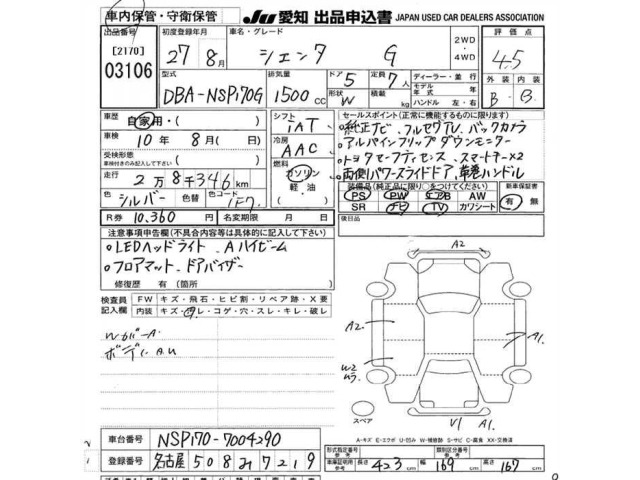 車内保管・守衛保管 JU 愛知 出品申込書 JAPAN USED CAR DEALERS ASSOCIATION
出品番号 初度登録年月 車名・グレード 評価点
[2170] 27年 8月 シエンタ G 2WD・4WD 4.5
03106 型式 排気量 ドア 5 定員 7人 ディーラー・並行 外装 内装
DBA-NSP170G 1500cc 形状 W 積載 kg モデル年式 年 ハンドル 左・右 B B
車歴 自家用・( ) シフト iAT セールスポイント(正常に機能するものに限る)
車検 10年 8月( 日) 冷房 AAC 純正ナビ フルセグTV バックカメラ
受検形態 車検付きのみ記入して下さい ( ) アルパインフリップダウンモニター
走行 2万8千346km 燃料 ガソリン 軽・油 トヨタセーフティセンス スマートキーx2
色 シルバー 色替 色コード 1F7 両側パワースライドドア 革巻ハンドル
R券 10,360円 名変期限 月 日 装備品(純正品に限り○をつけてください) 新車保証書
PS PW エアB AW 有・無
SR ナビ TV カワシート
注意事項申告欄(不具合内容等は具体的に記入して下さい) 後日品
LEDヘッドライト Aハイビーム
フロアマット ドアバイザー
修復歴 有( 箇所 )
検査員記入欄 FW キズ・飛石・ヒビ割・リペア跡・X要
内装 キズ・ヨゴレ・コゲ・穴・スレ・キレ・破レ
Wカバー A
ボディ A.U
A2
A2 A1
W2
V1 A1
スペア
A-キズ E-エクボ U-凹み W-補修跡 S-サビ C-腐食 XX-交換済
車台番号 NSP170-7004290
登録番号 名古屋 508 む 7219
形式指定番号 類別区分番号
車庫証明用参考 長さ 423cm 幅 169cm 高さ 167cm